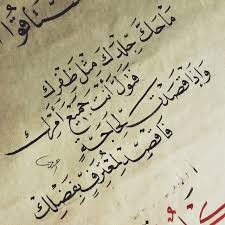 مَا حَكَّ جِلْدَكَ مِثْلُ ظُفْرِكَ
فَتَوَلَّ أَنْتَ جَمِيعَ أَمْرِكَ
وَإِذَا قَصَدْتَ لِحَاجَةٍ
فَاقْصِدْ لِمُعْتَرِفٍ بِفَضْلِكَ